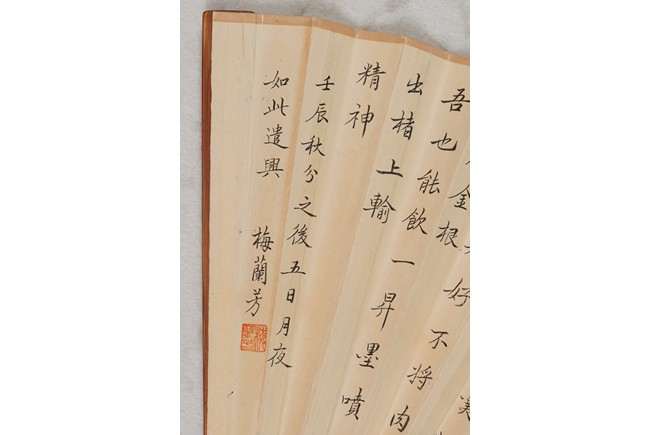 好不將肉
金根
吾也能飲一昇墨噴
出楮上輸
精神
壬辰秋分之後五日月夜
如此遣興 梅蘭芳